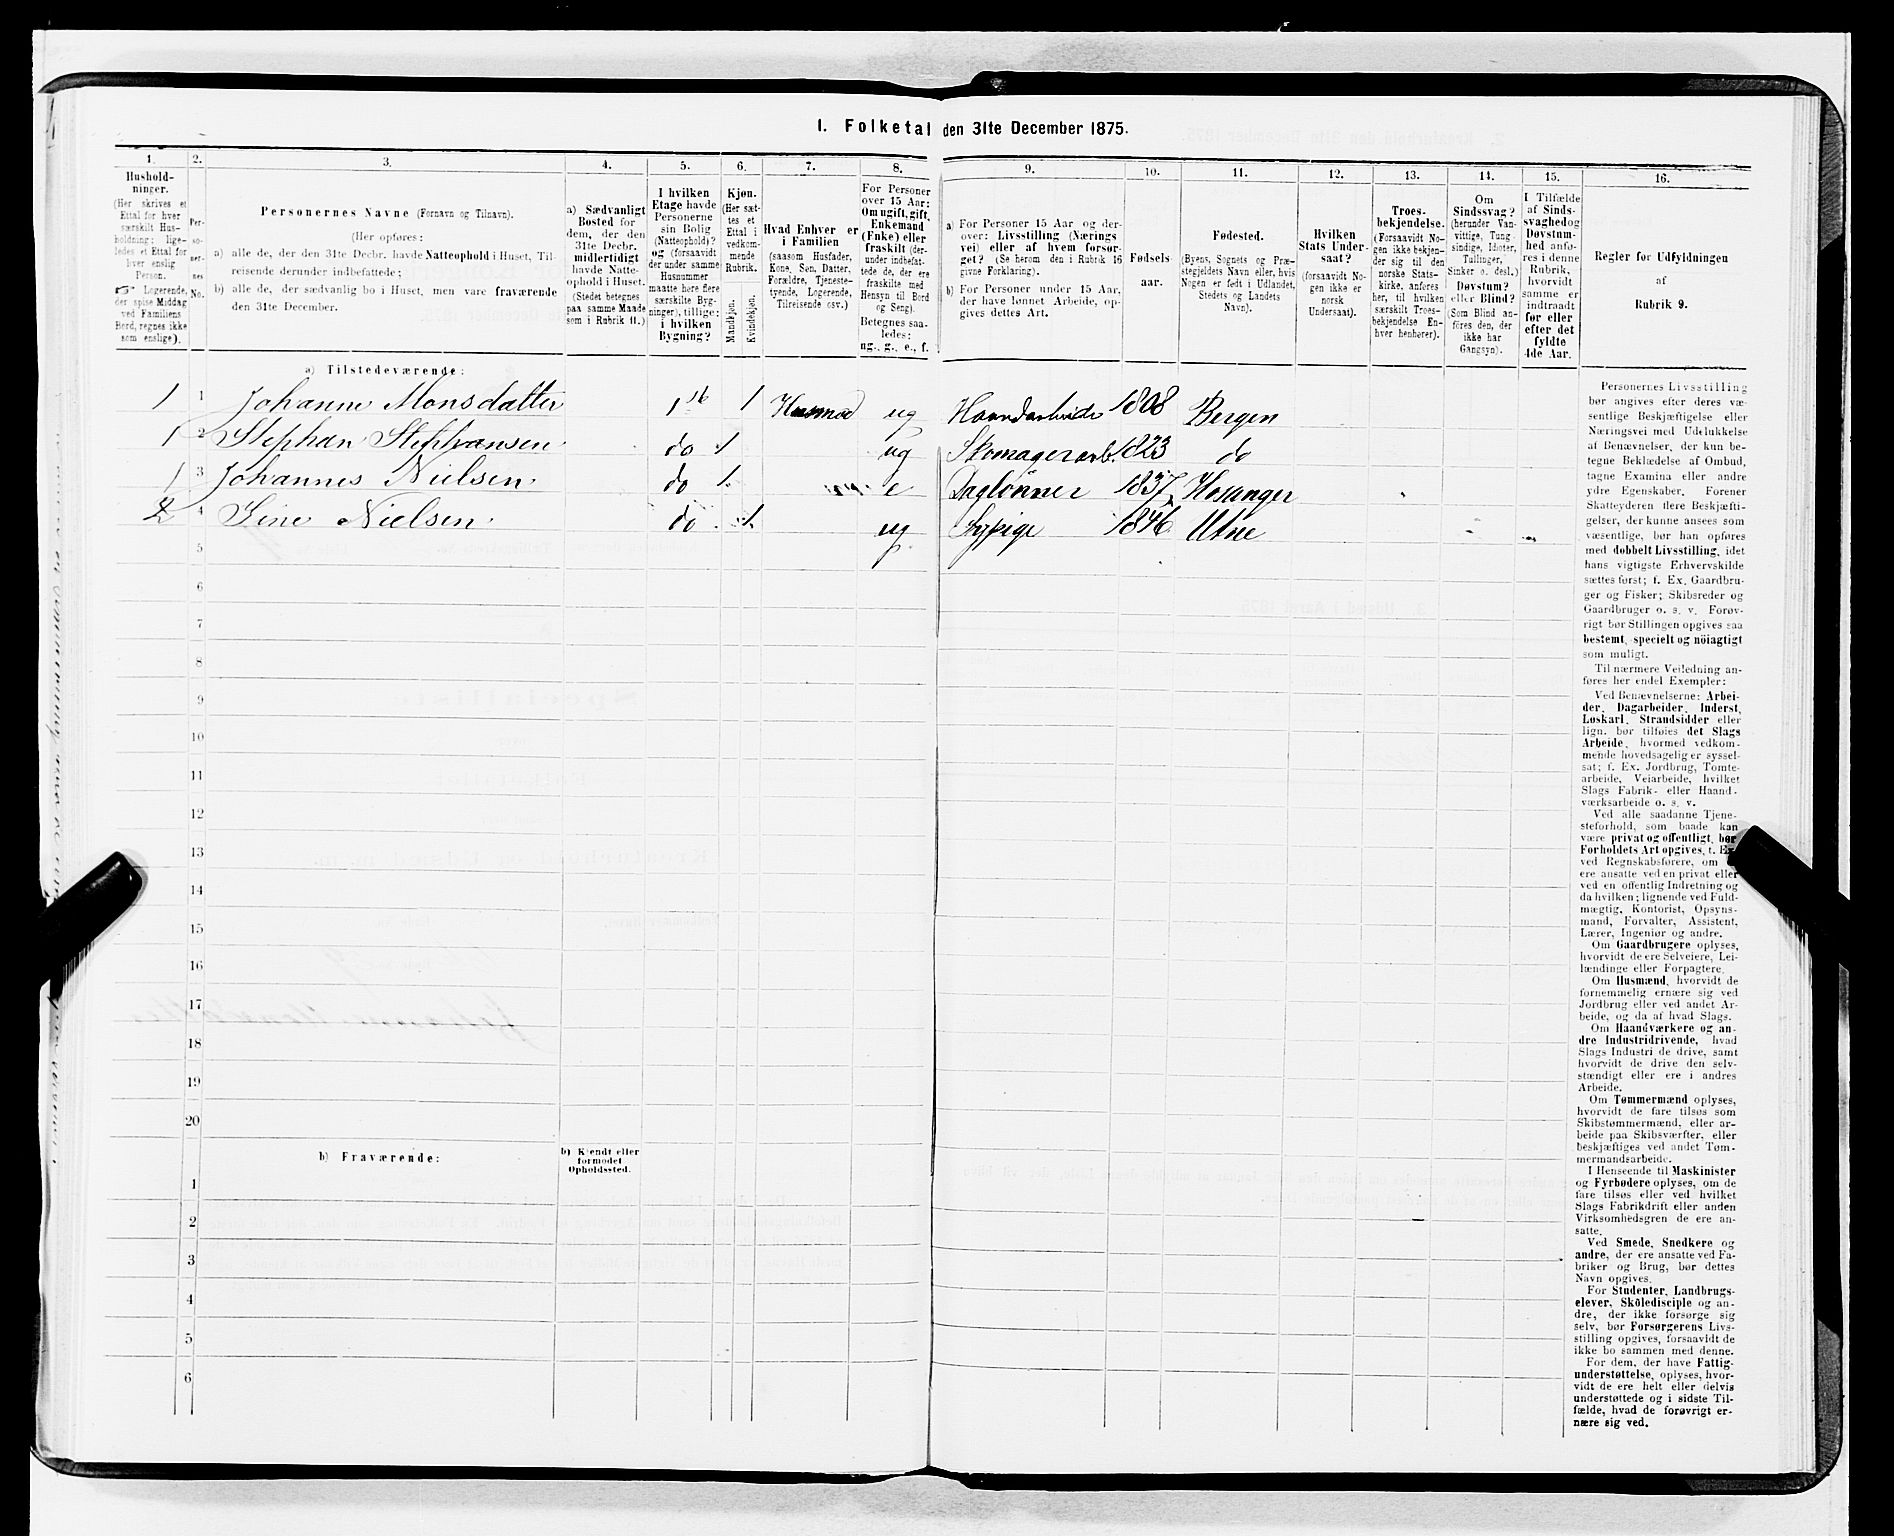 1. Folketal den 31te December 1875.
1. 2. 3. 4. 5. 6. 7. 8. 9. 10. 11. 12. 13. 14. 15. 16.
Hushold-
ninger.
(Her skrives et
Ettal for hver
særskilt Hus-
holdning; lige-
ledes et Ettal for
hver enslig
Person.
☞ Logerende,
der spise Middag
ved Familiens
Bord, regnes ikke
som enslige).
Per-
so-
ner-
nes
No.
Personernes Navne (Fornavn og Tilnavn).
(Her opføres:
a) alle de, der den 31te Decbr. havde Natteophold i Huset, Til-
reisende derunder indbefattede;
b) alle de, der sædvanlig bo i Huset, men vare fraværende
den 31te December.
a) Sædvanligt
Bosted for
dem, der den
31te Decbr.
midlertidigt
havde Natte-
ophold i Huset.
(Stedet betegnes
paa samme Maade
som i Rubrik 11.)
I hvilken
Etage havde
Personerne
sin Bolig
(Natteophold)?
og (forsaavidt
der under samme
Husnummer
maatte høre flere
særskilte Byg-
ninger), tillige:
i hvilken
Bygning?
Kjøn.
(Her sæt-
tes et
Ettal i
vedkom-
mende
Rubrik.
Mandkjøn.
Kvindekjøn.
Hvad Enhver er
i Familien
(saasom Husfader,
Kone, Søn, Datter,
Forældre, Tjeneste-
tyende, Logerende,
Tilreisende osv.)
For Personer
over 15 Aar:
Om ugift, gift,
Enkemand
(Enke) eller
fraskilt (der-
under indbefat-
tede de, der ere
fraskilte med
Hensyn til Bord
og Seng).
Betegnes saa-
ledes:
ug., g., e., f.
a) For Personer 15 Aar og der-
over: Livsstilling (Nærings
vei) eller af hvem forsør-
get? (Se herom den i Rubrik 16
givne Forklaring).
b) For Personer under 15 Aar,
der have lønnet Arbeide, op-
gives dettes Art.
Fødsels-
aar.
Fødested.
(Byens, Sognets og Præ-
stegjeldets Navn eller, hvis
Nogen er født i Udlandet,
Stedets og Landets
Navn).
I Hvilken
Stats Under-
saat?
(forsaavidt No-
gen ikke er
norsk
Undersaat).
Troes-
bekjendelse.
(Forsaavidt No-
gen ikke bekjen-
der sig til den
norske Stats-
kirke, anføres
her, til hvilken
særskilt Troes-
bekjendelse En-
hver henhører).
Om
Sindssvag?
(herunder Van-
vittige, Tung-
sindige, Idioter,
Tullinger,
Sinker o. desl.)
Døvstum?
eller Blind?
(Som Blind an-
føres den, der
ikke har
Gangsyn).
I Tilfælde
af Sinds-
svaghed og
Døvstum-
hed anfø-
res i denne
Rubrik,
hvorvidt
samme er
indtraadt
før eller
efter det
fyldte
4de Aar.
Regler for Udfyldningen
af
Rubrik 9.
a) Tilstedeværende:
1 1 Johanne Monsdatter 1ste 1 Husmod ug Haandarbeide 1808 Bergen
1 2 Stephan Stephansen do 1 ug Skomagerarb. 1823 do
1 3 Johannes Nielsen do 1 e Daglønner 1837 Hosanger
2 4 Sine Nielsen do 1 ug Sypige 1846 Utne
5
6
7
8
9
10
11
12
13
14
15
16
17
18
19
20
b) Fraværende:
b) Kjendt eller
formodet
Opholdssted.
1
2
3
4
5
6
Personernes Livsstilling
bør angives efter deres væ-
sentlige Beskjæftigelse eller
Næringsvei med Udelukkelse
af Benævnelser, der kun be-
tegne Beklædelse af Ombud,
tagne Examina eller andre
ydre Egenskaber. Forener
Skatteyderen flere Beskjæfti-
gelser, der kunne ansees som
væsentlige, bør han opføres
med dobbelt Livsstilling, idet
hans vigtigste Erhvervskilde
sættes først; f. Ex. Gaardbru-
ger og Fisker; Skibsreder og
Gaardbruger o. s. v. Forøv-
rigt bør Stillingen opgives saa
bestemt, specielt og nöiagtigt
som muligt.
Til nærmere Veiledning an-
føres her endel Exempler:
Ved Benævnelserne: Arbei-
der, Dagarbeider, Inderst,
Løskarl, Strandsidder eller
lign. bør tilføies det Slags
Arbeide, hvormed vedkom-
mende hovedsagelig er syssel-
sat; f. Ex. Jordbrug, Tømte-
arbeide, Veiarbeide, hvilket
Slags Fabrik- eller Haand-
værksarbeide o. s. v.
Ved alle saadanne Tjene-
steforhold, som baade kan
være privat og offentligt, bør
Forholdets Art opgives, f. Ex.
ved Regnskabsførere, om
ere ansatte ved en privat eller
ved en offentlig Indretning og
da hvilken; lignende ved Fuld-
mægtig, Kontorist, Opsyns-
mand, Forvalter, Assistent,
Lærer, Ingeniør og andre.
Om Gaardbrugere oplyses,
hvorvidt de ere Selveiere, Lei-
lændinge eller Forpagtere.
Om Husmænd, hvorvidt de
fornemmelig ernære sig ved
Jordbrug eller ved andet Ar-
beide, og da af hvad Slags.
Om Haandværkere og an-
dre Industridrivende, hvad
Slags Industri de drive, samt
hvorvidt de drive den selv-
stændigt eller ere i andres
Arbeide.
Om Tømmermænd oplyses,
hvorvidt de fare tilsøs som
Skibstømmermænd, eller ar-
beide paa Skibsværfter, eller
beskjæftiges ved andet Tøm-
mermandsarbeide.
I Henseende til Maskinister
og Fyrbødere oplyses, om de
fare tilsøs eller ved hvilket
Slags Fabrikdrift eller anden
Virksomhedsgren de ere an-
satte.
Ved Smede, Snedkere og
andre, der ere ansatte ved Fa-
briker og Brug, bør dettes
Navn opgives.
For Studenter, Landbrugs-
elever, Skoledisciple og an-
dre, der ikke forsørge sig
selv, bør Forsørgerens Livs-
stilling opgives, forsaavidt de
ikke bo sammen med denne.
For dem, der have Fattig-
understøttelse, oplyses, hvor-
vidt de ere helt eller delvis
understøttede og i sidste Til-
fælde, hvad de forøvrigt er-
nære sig ved.